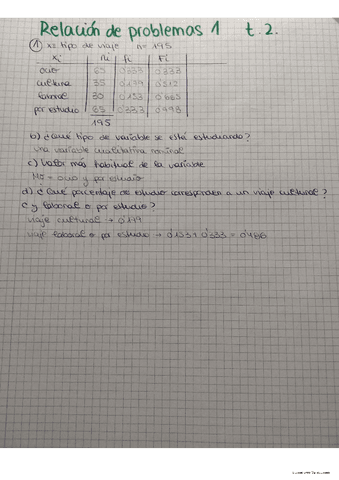 Relación de problemas 1 t.2.
① x= tipo de viaje n= 195
xi ni fi Fi
ocio 65 0'333 0'333
cultural 35 0'179 0'512
laboral 30 0'153 0'665
por estudio 65 0'333 0'998
195
b) ¿Qué tipo de variable se está estudiando?
una variable cualitativa nominal
c) Valor más habitual de la variable
Mo = ocio y por estudio
d) ¿Qué porcentaje de estudio corresponden a un viaje cultural?
¿y laboral o por estudio?
viaje cultural → 0'179
viaje laboral o por estudio → 0'153 0'333 = 0'486